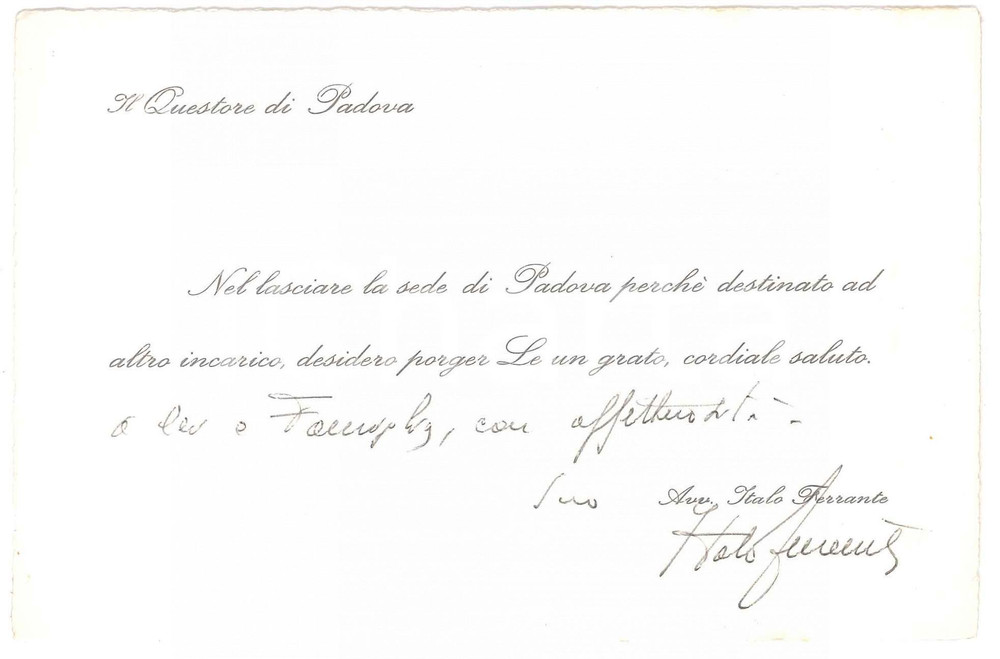 Il Questore di Padova
Nel lasciare la sede di Padova perchè destinato ad
altro incarico, desidero porger Le un grato, cordiale saluto.
a lei e Famiglia, con affettuosità.
Suo Avv. Italo Ferrante
Italo Ferrante